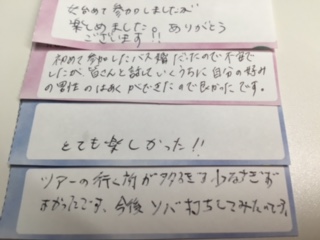 初めて参加しましたが
楽しめました。ありがとう
ございます!!
初めて参加したバス婚だったので不安で
したが、皆さんと話していくうちに自分の好み
の男性のはあくができたので良かったです。
とても楽しかった!!
ツアーの行く所が多
よかったです、今後ソバ打ちしてみたいです。